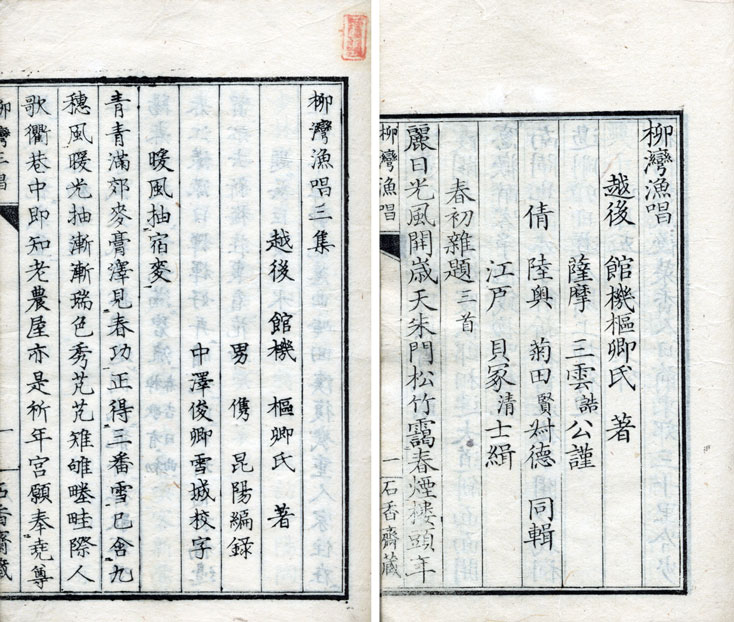 柳灣漁唱
越後 館機樞卿氏 著
薩摩 三雲誥公謹
倩 陸奥 菊田賢叔德 同輯
江戸 貝冢清士緝
春初雜題三首
麗日光風開歳天朱門松竹靄春煙樓頭年
柳灣漁唱 一 石香齋藏
柳灣漁唱三集
越後 館機 樞卿氏 著
男 儁 昆陽編錄
中澤俊卿雪城校字
暖風抽宿麥
青青滿郊麥膏澤見春功正得三番雪已含九
穗風暖光抽漸漸瑞色秀芃芃雉雊塍畦際人
歌衢巷中即知老農屋亦是祈年宮願奉堯尊
柳灣三唱 一 石香齋藏